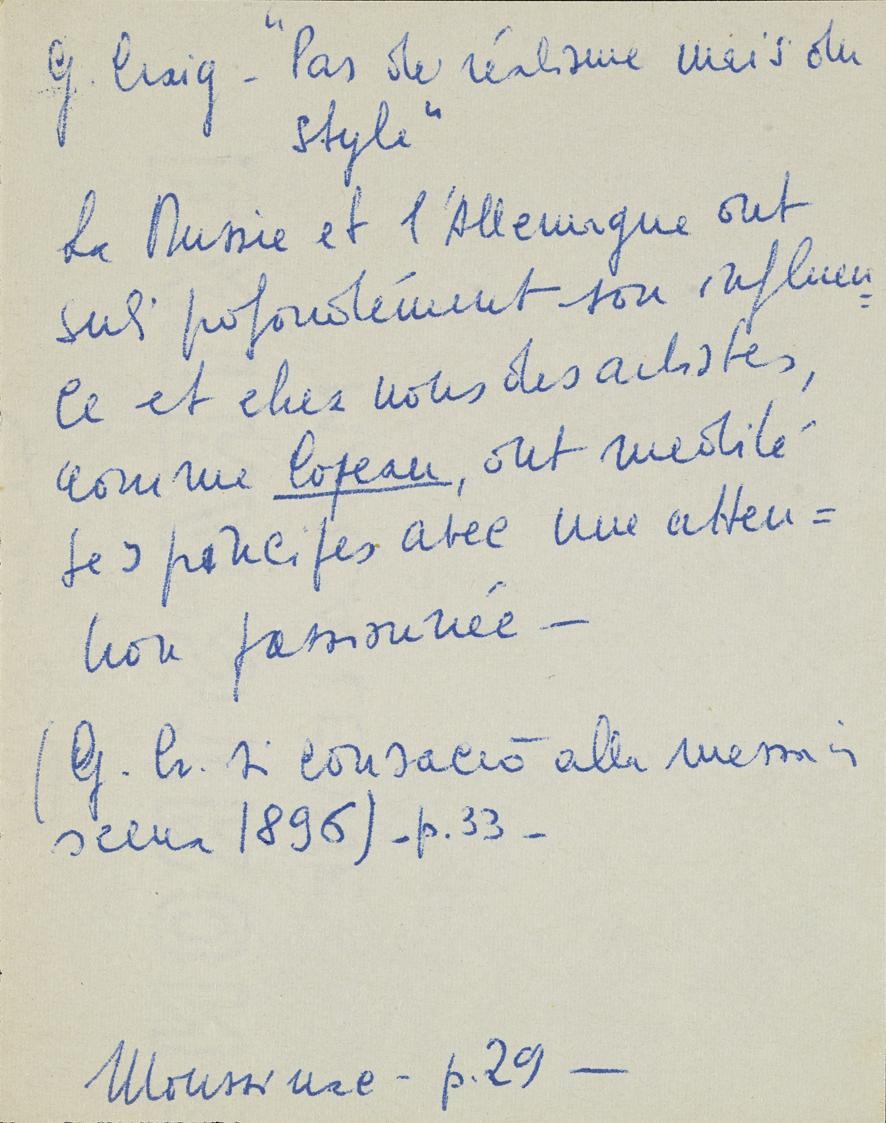 G. Craig - "Pas de réalisme mais du
style"
La Russie et l'Allemagne ont
subi pofondément son influen=
ce et chez nous des artistes,
comme Copeau, ont medité
ses principes avec une atten=
tion passionnée —
(G. Cr. si consacrò alla messa in
scena 1896) - p. 33 -
Moussinac - p. 29 —